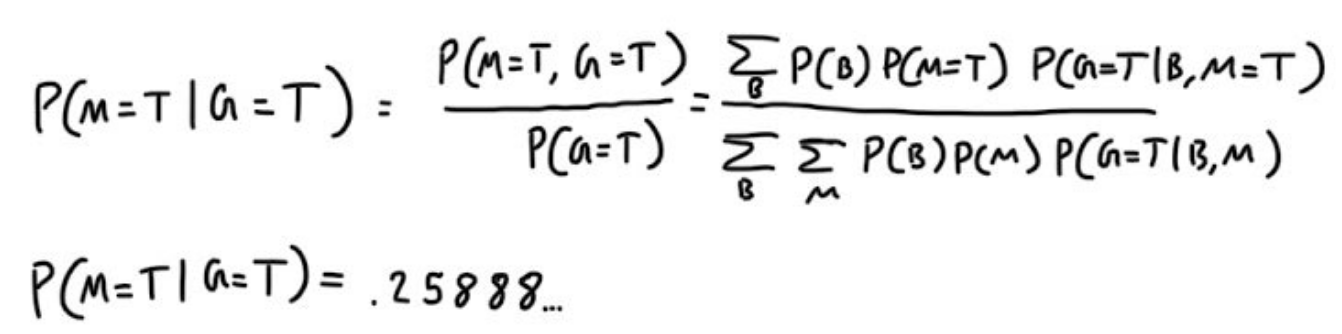 P(M=T | G=T) = P(M=T, G=T) / P(G=T) = ∑_B P(B) P(M=T) P(G=T|B,M=T) / ∑_B ∑_M P(B)P(M) P(G=T|B,M)
P(M=T | G=T) = .25888...